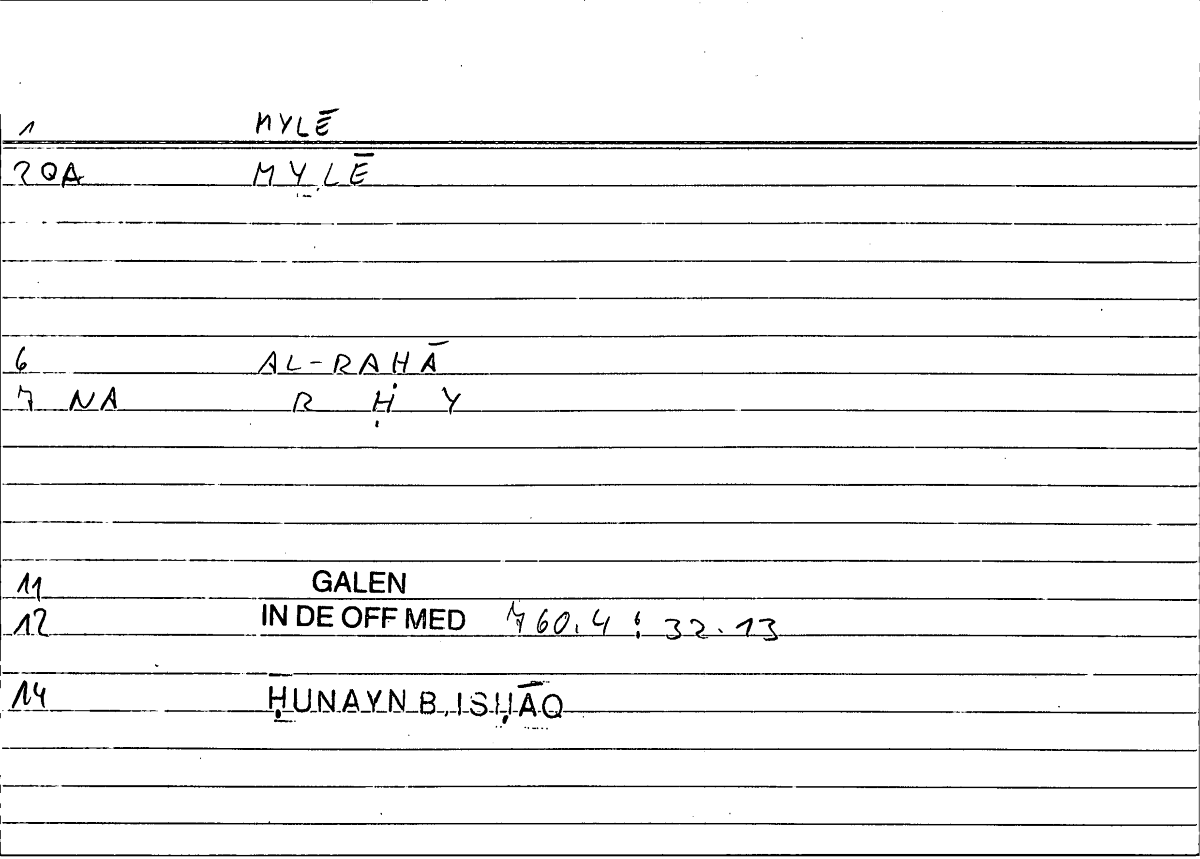 1 MYLĒ
2 QA MYLĒ
6 AL-RAHĀ
7 NA R Ḥ Y
11 GALEN
12 IN DE OFF MED 760.4 : 32.13
14 ḤUNAYN B. ISḤĀQ